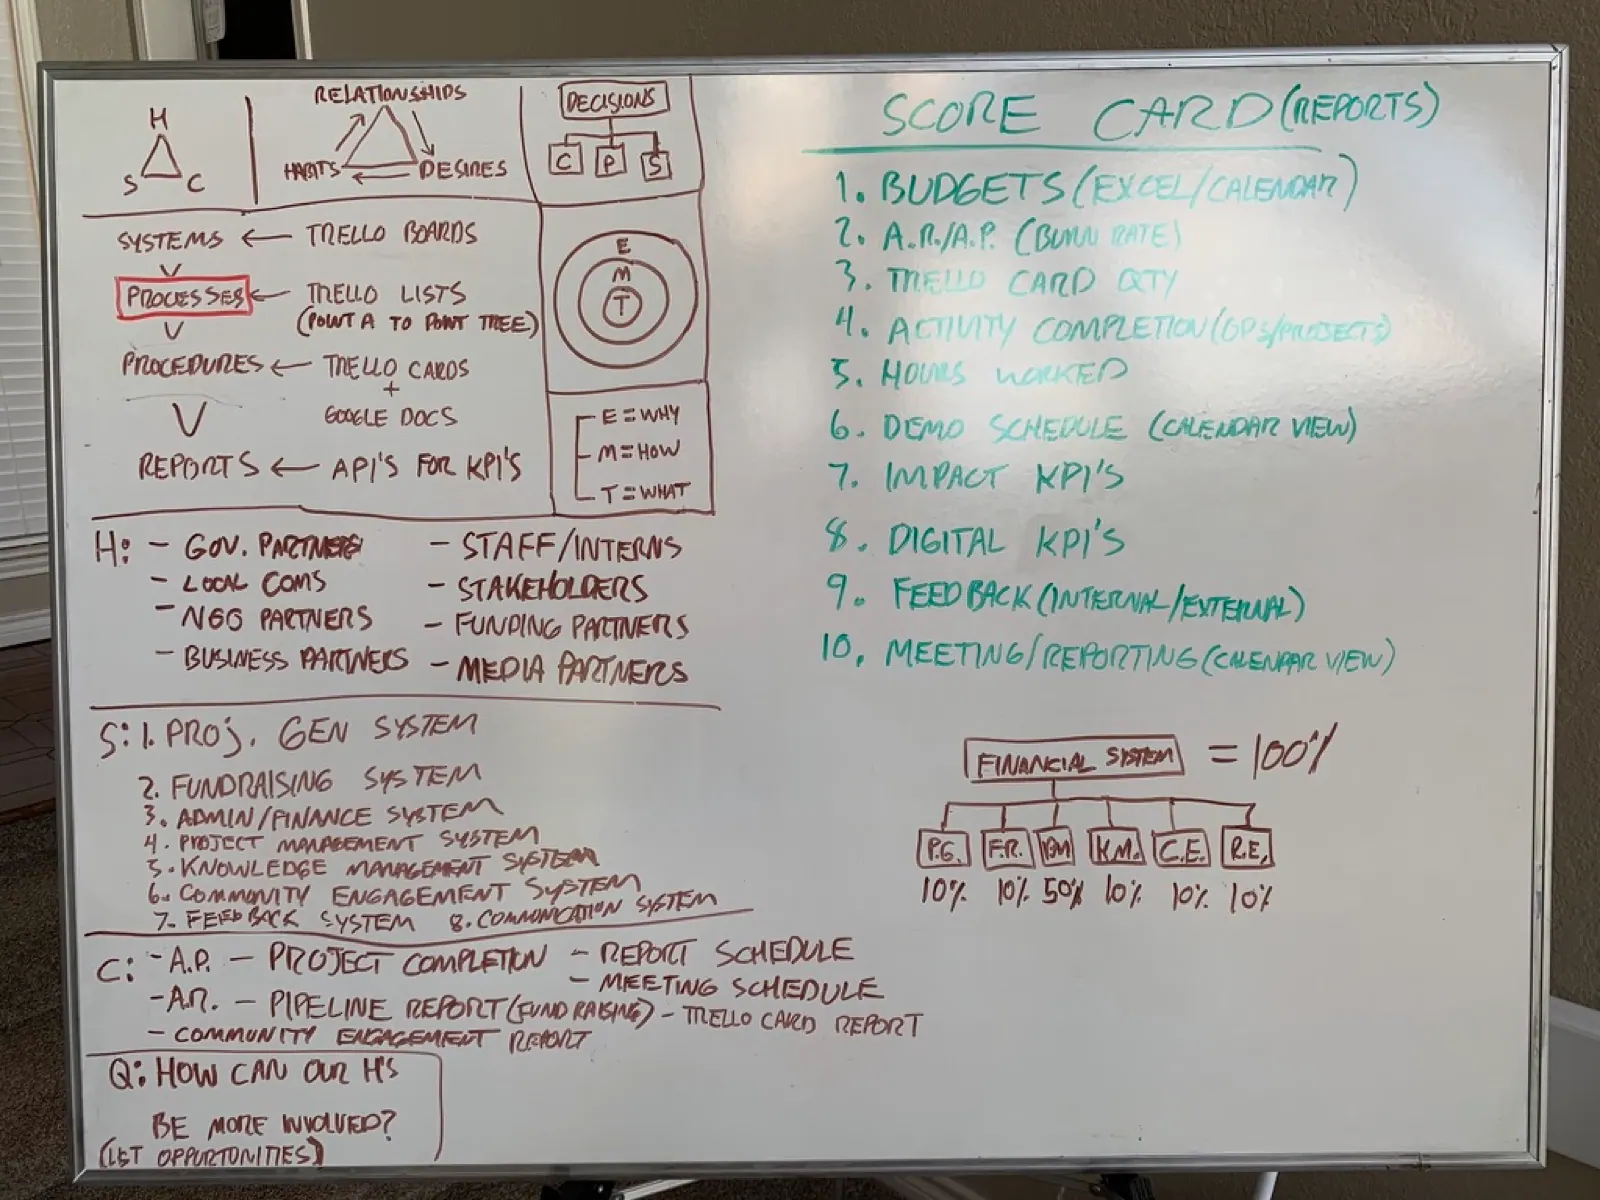 H
S C
RELATIONSHIPS
HABITS DESIRES
DECISIONS
C P S
SYSTEMS ← TRELLO BOARDS
PROCESSES ← TRELLO LISTS
(POINT A TO POINT TREE)
PROCEDURES ← TRELLO CARDS
+
GOOGLE DOCS
REPORTS ← API'S FOR KPI'S
E
M
T
E = WHY
M = HOW
T = WHAT
H: - GOV. PARTNERS - STAFF/INTERNS
- LOCAL COMS - STAKEHOLDERS
- NGO PARTNERS - FUNDING PARTNERS
- BUSINESS PARTNERS - MEDIA PARTNERS
S: 1. PROJ. GEN SYSTEM
2. FUNDRAISING SYSTEM
3. ADMIN/FINANCE SYSTEM
4. PROJECT MANAGEMENT SYSTEM
5. KNOWLEDGE MANAGEMENT SYSTEM
6. COMMUNITY ENGAGEMENT SYSTEM
7. FEEDBACK SYSTEM 8. COMMUNICATION SYSTEM
C: - A.P. - PROJECT COMPLETION - REPORT SCHEDULE
- MEETING SCHEDULE
- A.R. - PIPELINE REPORT (FUNDRAISING) - TRELLO CARD REPORT
- COMMUNITY ENGAGEMENT REPORT
Q: HOW CAN OUR H'S
BE MORE INVOLVED?
(LIST OPPORTUNITIES)
SCORE CARD (REPORTS)
1. BUDGETS (EXCEL/CALENDAR)
2. A.R./A.P. (BURN RATE)
3. TRELLO CARD QTY
4. ACTIVITY COMPLETION (OPS/PROJECTS)
5. HOURS WORKED
6. DEMO SCHEDULE (CALENDAR VIEW)
7. IMPACT KPI'S
8. DIGITAL KPI'S
9. FEEDBACK (INTERNAL/EXTERNAL)
10. MEETING/REPORTING (CALENDAR VIEW)
FINANCIAL SYSTEM = 100%
P.G. F.R. K.M. C.E. R.E.
10% 10% 50% 10% 10% 10%